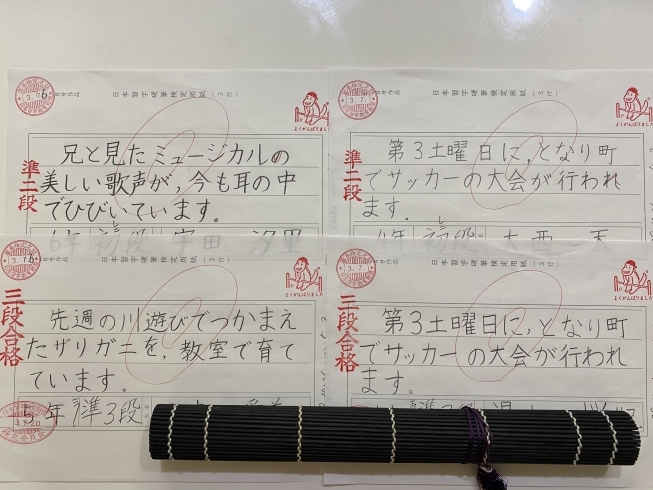 日本習字硬筆検定用紙(3行)
準二段
兄と見たミュージカルの
美しい歌声が,今も耳の中
でひびいています。
6年 初段 宇田 沙里
よくがんばりました
日本習字硬筆検定用紙(3行)
準二段
第3土曜日に,となり町
でサッカーの大会が行われ
ます。
初段
よくがんばりました
日本習字硬筆検定用紙(3行)
三段合格
先週の川遊びでつかまえ
たザリガニを,教室で育て
ています。
5年 準3段
よくがんばりました
日本習字硬筆検定用紙(3行)
三段合格
第3土曜日に,となり町
でサッカーの大会が行われ
ます。
よくがんばりました